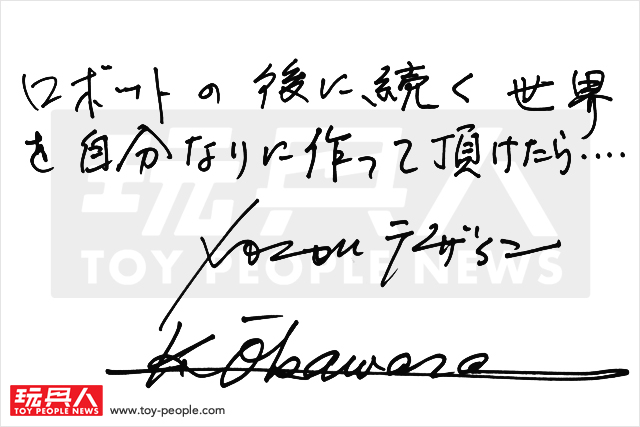 ロボットの後に続く世界
を自分なりに作って頂けたら‥‥
デザイン
K. Ōkawara
玩具人
TOY PEOPLE NEWS
玩具人
TOY PEOPLE NEWS
www.toy-people.com